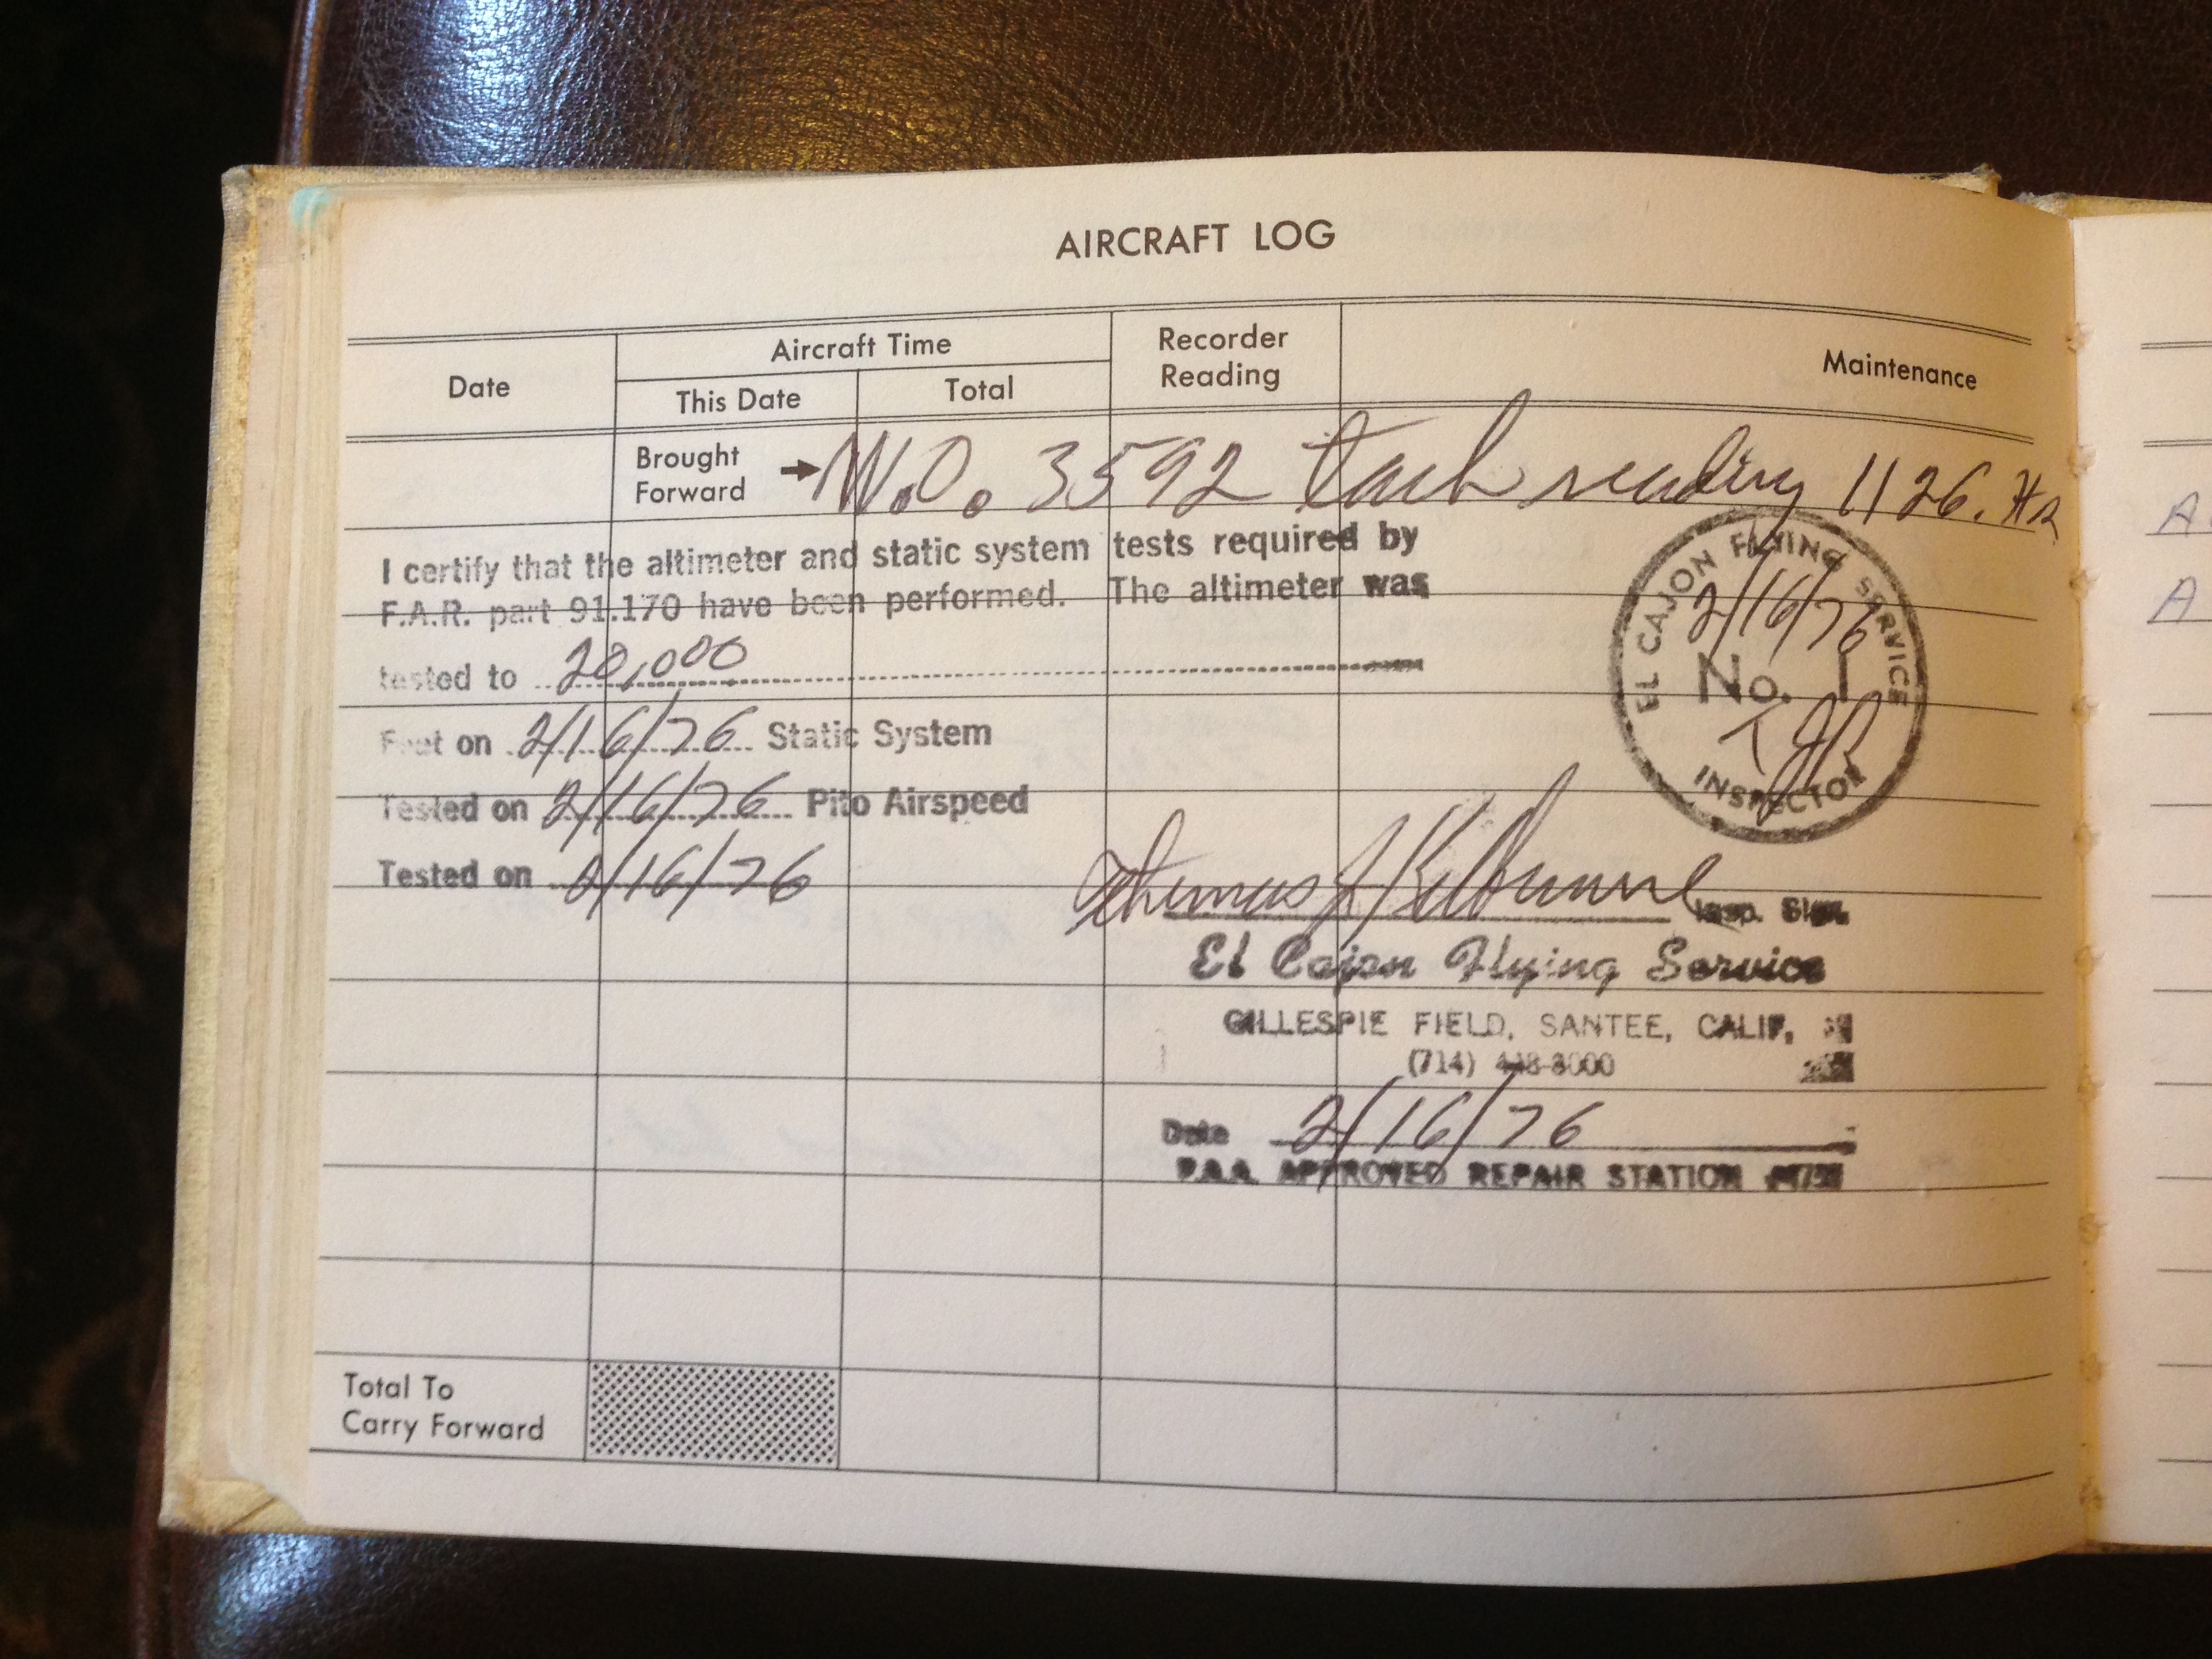 AIRCRAFT LOG
Date
Aircraft Time
This Date
Total
Recorder
Reading
Maintenance
Brought
Forward
W.O. 3592 tach reading 1126. Hr
I certify that the altimeter and static system tests required by
F.A.R. part 91.170 have been performed. The altimeter was
tested to 20,000
Feet on 2/16/76 Static System
Tested on 2/16/76 Pito Airspeed
Tested on 2/16/76
EL CAJON FLYING SERVICE
2/16/76
No. 1
INSPECTOR
Thomas J Insp. Sign.
El Cajon Flying Service
GILLESPIE FIELD, SANTEE, CALIF,
(714)
Date 2/16/76
F.A.A. APPROVED REPAIR STATION
Total To
Carry Forward
A
A